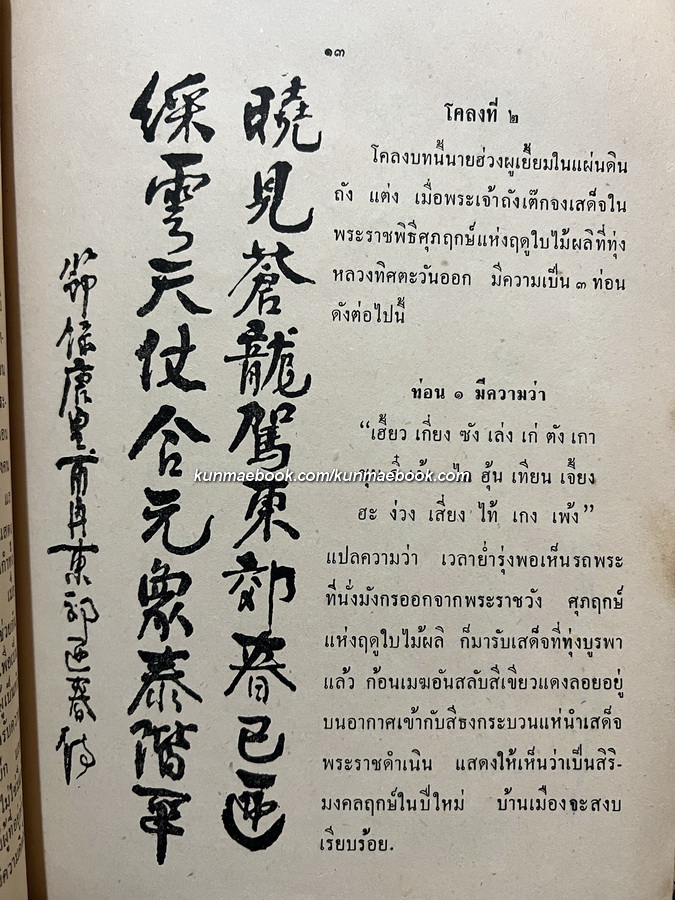 ๑๓
โคลงที่ ๒
โคลงบทนี้นายฮ่วงผูเยี้ยมในแผ่นดิน
ถัง แต่ง เมื่อพระเจ้าถังเต๊กจงเสด็จใน
พระราชพิธีศุภฤกษ์แห่งฤดูใบไม้ผลิที่ทุ่ง
หลวงทิศตะวันออก มีความเป็น ๓ ท่อน
ดังต่อไปนี้
ท่อน ๑ มีความว่า
“เฮี้ยว เกี่ยง ซัง เล่ง เก่ ตัง เกา
ฮุ้น เทียน เจี้ยง
ฮะ ง่วง เสี่ยง ไท้ เกง เพ้ง”
แปลความว่า เวลาย่ำรุ่งพอเห็นรถพระ
ที่นั่งมังกรออกจากพระราชวัง ศุภฤกษ์
แห่งฤดูใบไม้ผลิ ก็มารับเสด็จที่ทุ่งบูรพา
แล้ว ก้อนเมฆอันสลับสีเขียวแดงลอยอยู่
บนอากาศเข้ากับสีธงกระบวนแห่นำเสด็จ
พระราชดำเนิน แสดงให้เห็นว่าเป็นสิริ-
มงคลฤกษ์ในปีใหม่ บ้านเมืองจะสงบ
เรียบร้อย.
曉見蒼龍駕東郊春已迎
綵雲天仗合元象泰階平
節唐皇甫冉東郊迎春詩
kunmaebook.com/kunmaebook.com